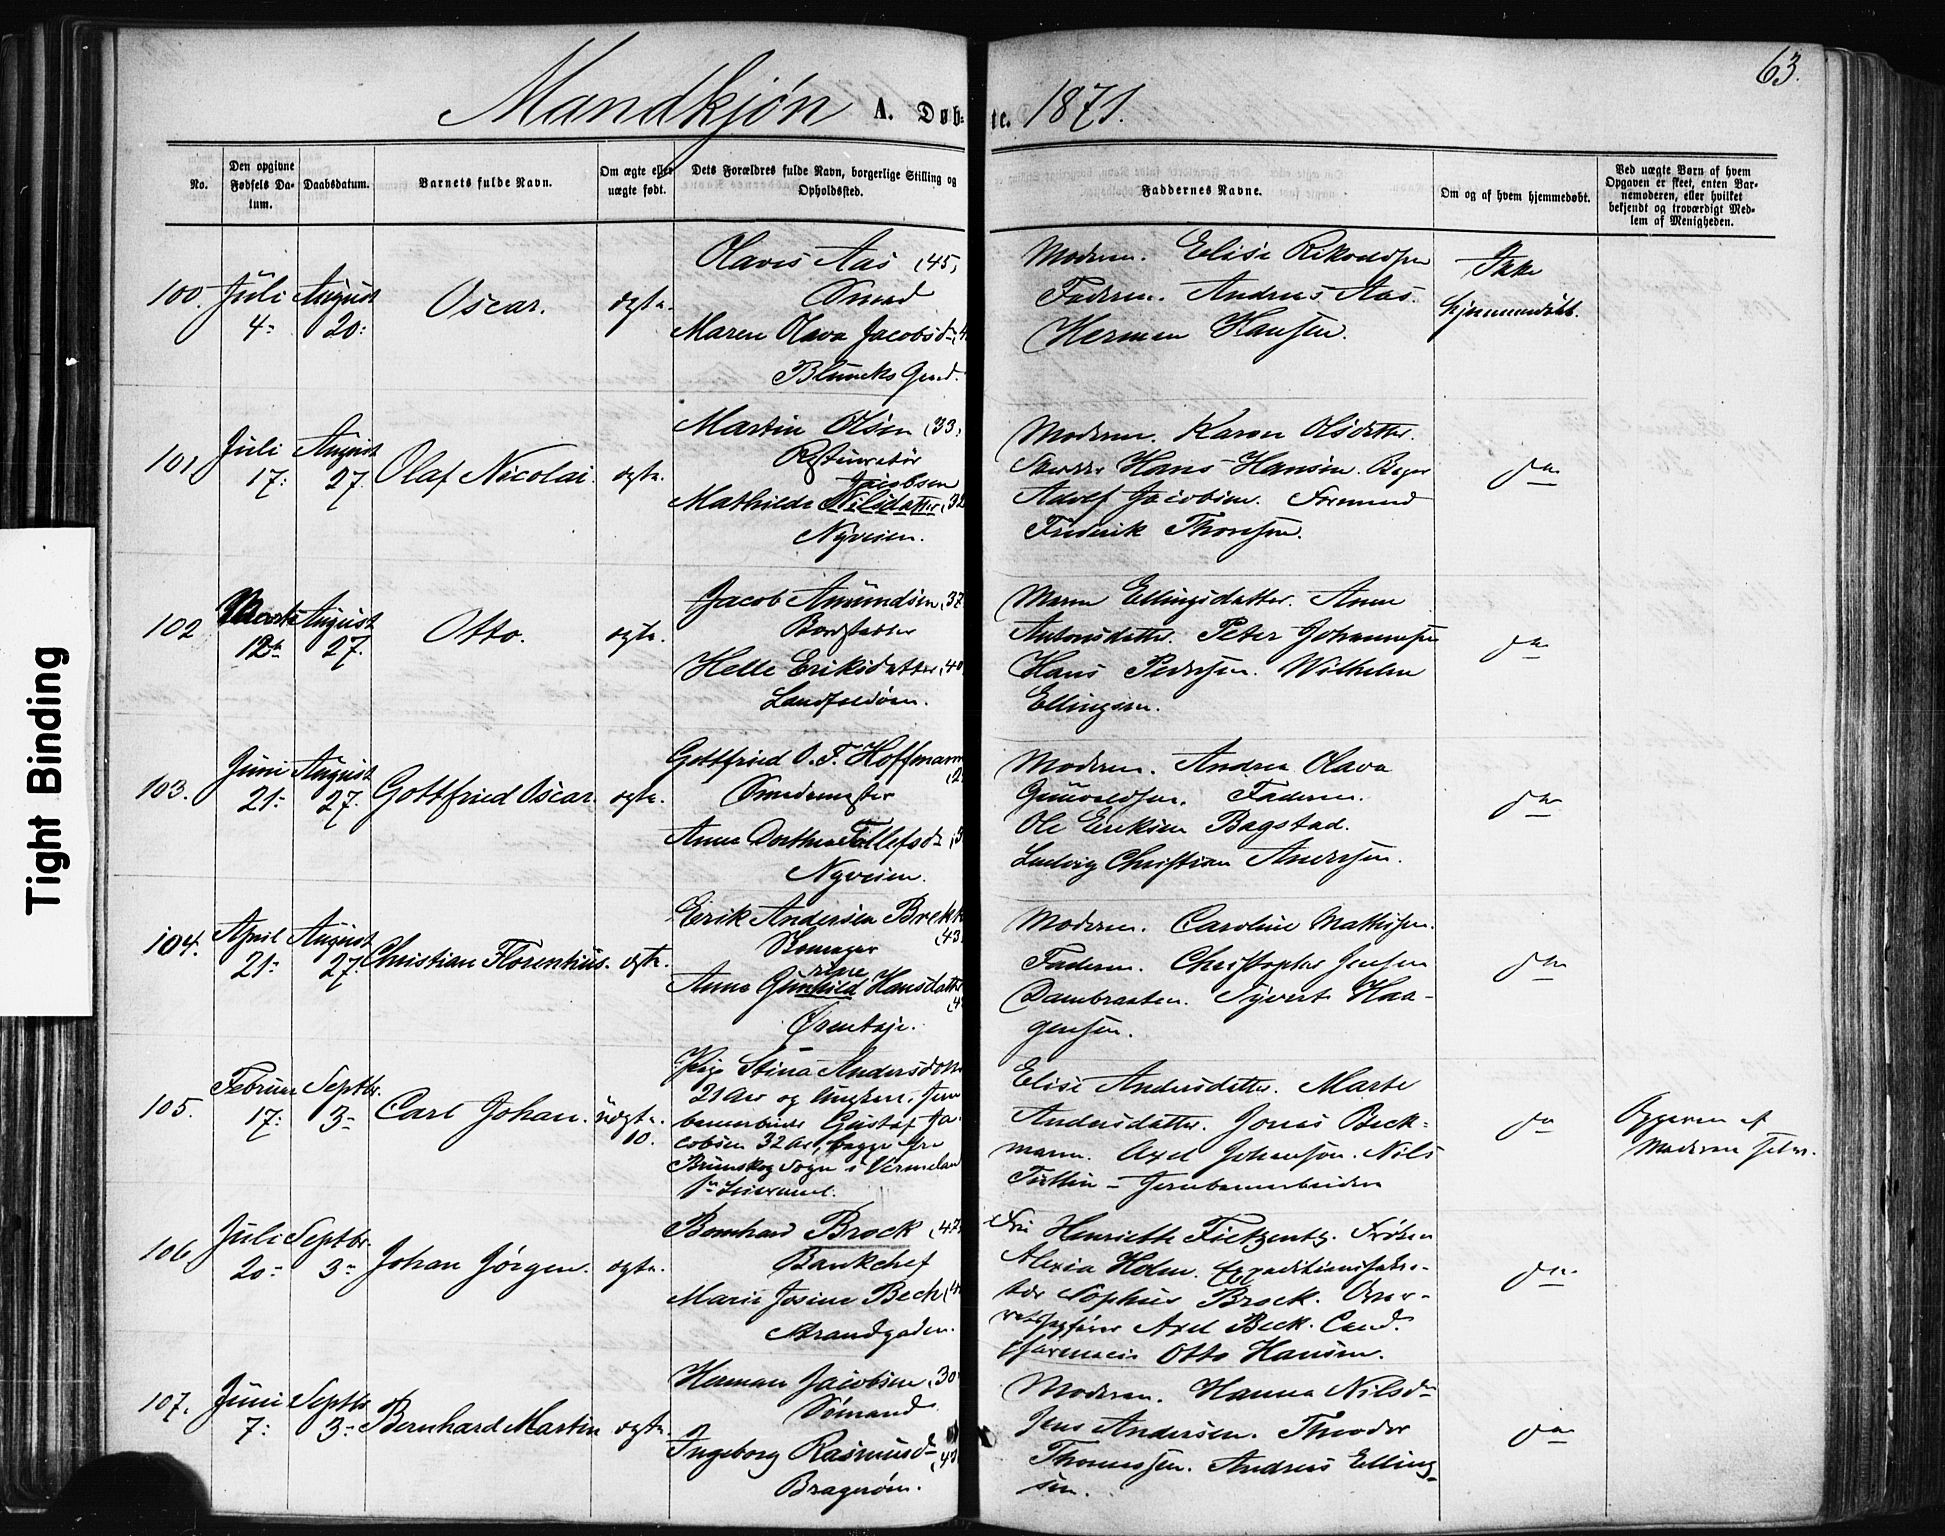 63.
Mandkjøn A. Døb- te. 1871.
No.
Den opgivne Fødsels Da-tum.
Daabsdatum.
Barnets fulde Navn.
Om ægte eller uægte født.
Dets Forældres fulde Navn, borgerlige Stilling og Opholdssted.
Faddernes Navne.
Om og af hvem hjemmedøbt.
Ved uægte Børn af hvem Opgaven er skeet, enten Bar-nemoderen, eller hvilket bekjendt og troværdigt Med-lem af Menigheden.
100. Juli 4- August 20: Oscar. ægte.
Olaves Aas (45)
Smed
Maren Olava Jacobsd-
Bluncks Gaard.
Moderen. Elise
Faderen. Andreas Aas.
Herman Hansen.
Ikke
hjemmedøbt.
101. Juli 17: August 27. Olaf Nicolai. ægte.
Martin Olsen (33)
Jacobsen
Mathilde Nilsdatter (32
Nyveien.
Moderen. Karen Olsdatter.
Hans Hansen. Bager
Adolf Jacobsen. Formand
Frederik Thoresen.
do
102 Marts 12te August 27. Otto. ægte.
Jacob Amundsen (37
Bordstabler
Helle Eriksdatter (40
Landfaldøen.
Maren Ellingsdatter. Anne
Antonsdatter. Peter Johannesen
Hans Pedersen. Wilhelm
Ellingsen.
do
103. Juni 21- August 27. Gottfried Oscar. ægte.
Gottfried O. F. Hoffmann
Smedemester
Anne Dorthea Tollefsd-
Nyveien.
Moderen. Andrea Olava
Gunvaldsen. Faderen.
Ole Eriksen Bagstad.
Ludvig Christian Andersen.
do
104. April 21- August 27. Christian Florentius. ægte.
Erik Andersen Brekk
(43
Skomager
rine
Anne Gunhild Hansdatter
Ørentoje.
Moderen. Caroline Mathisen.
Faderen. Christopher Jensen
Dambraaten. Syvert Haa-
gensen.
do
105. Februar 17: Septbr. 3- Carl Johan. uægte. 10.
Pige Stina Andersdotter
21 Aar og Ungkarl, Jern
banearbeider Gustaf Ja-
cobsen 32 Aar, begge fra
Brunskog Sogn i Vermeland
Elise Andersdatter. Marte
Andersdatter. Jonas Beck-
mann. Axel Johansson. Nils
Jernbanearbeidere
do
Opgaven af
Moderen selv.
106 Juli 20- Septbr. 3- Johan Jørgen. ægte.
Bernhard Brock (47
Bankchef
Marie Josine Bech (4
Strandgaden.
Fru Henriette Fietzentz. Frøken
Alexia Holm. Expeditionssekre-
tær Sophus Brock. Over-
retssagfører Axel Beck. Cand.
pharmaciæ Otto Hansen.
do
107. Juni 7: Septbr. 3- Bernhard Martin ægte.
Herman Jacobsen (30
Sømand
Ingeborg Rasmusd- (43
Bragerøen.
Moderen. Hanna Nilsd-
Jens Andersen. Theodor
Thomassen. Andreas Elling-
sen.
do
Tight Binding